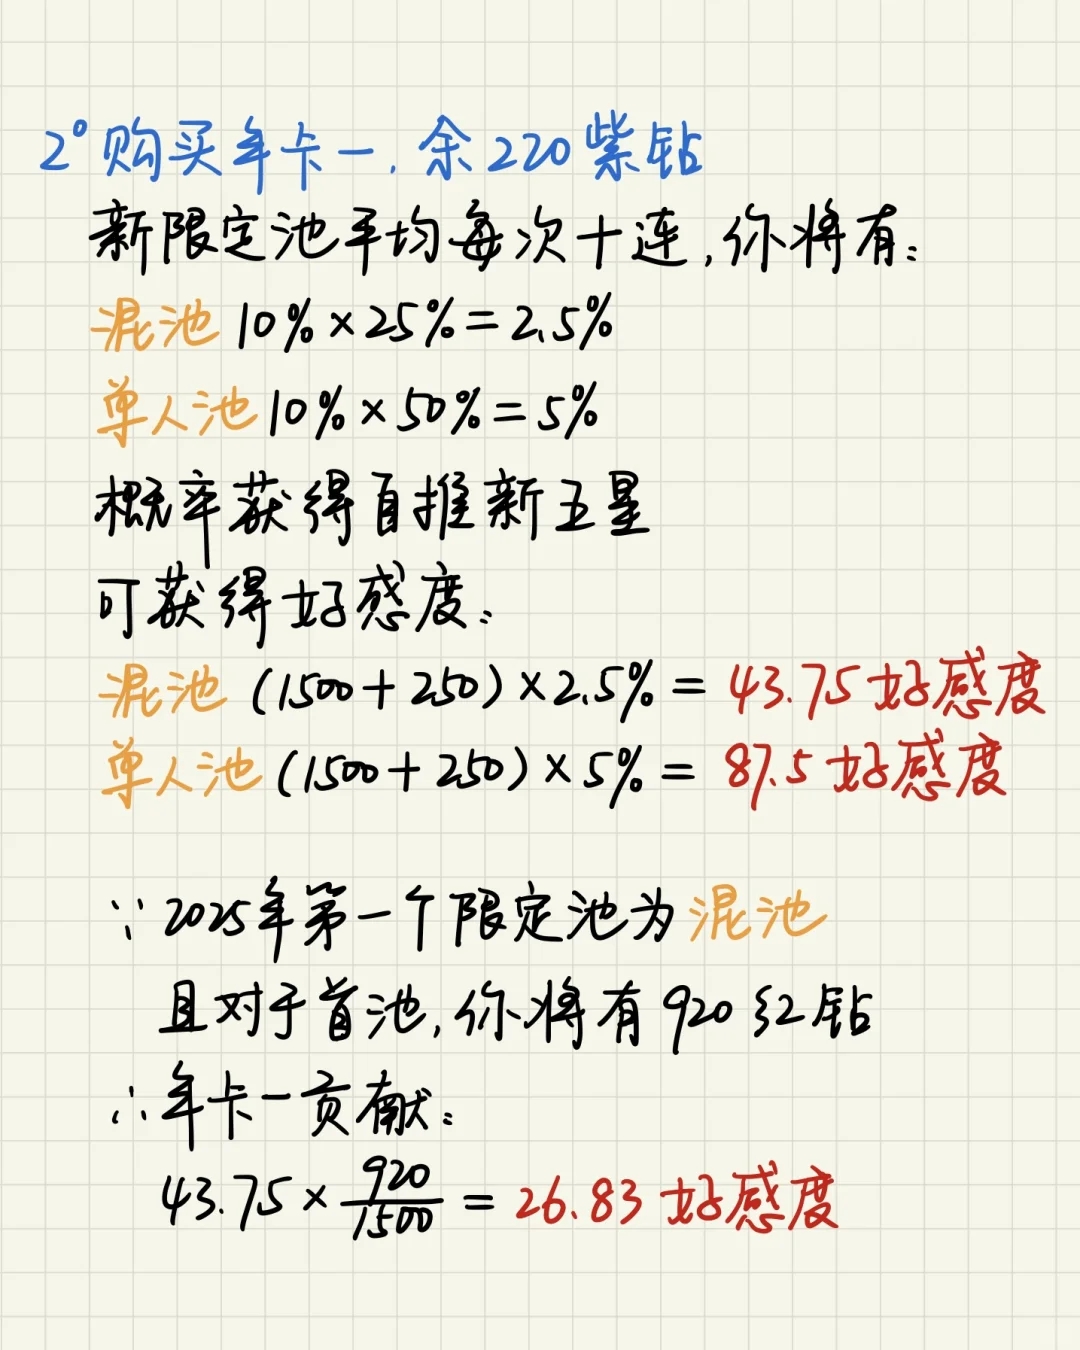 2°购买年卡一,余220紫钻
新限定池平均每次十连,你将有:
混池 10%×25%=2.5%
单人池 10%×50%=5%
概率获得自推新五星
可获得好感度:
混池 (1500+250)×2.5%= 43.75 好感度
单人池 (1500+250)×5%= 87.5 好感度
∵ 2025年第一个限定池为混池
且对于首池,你将有920红钻
∴年卡一贡献:
43.75×920/1500=26.83 好感度